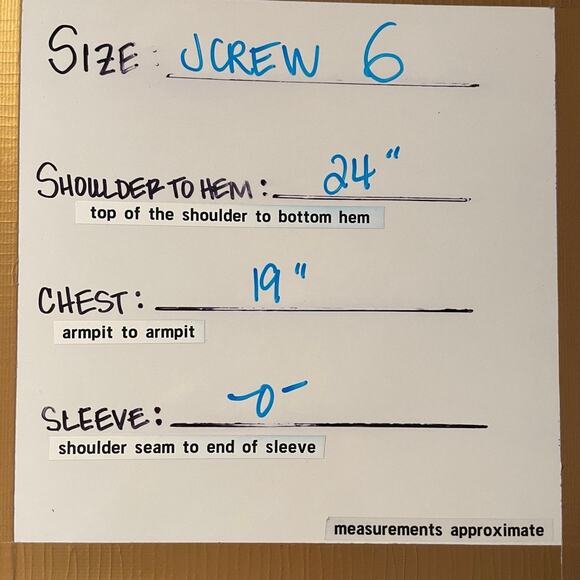 SIZE: JCREW 6
SHOULDER TO HEM: 24"
top of the shoulder to bottom hem
CHEST: 19"
armpit to armpit
SLEEVE: -0-
shoulder seam to end of sleeve
measurements approximate